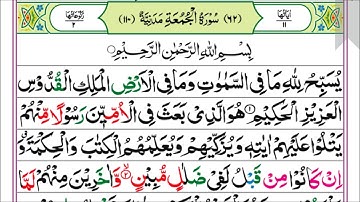 اٰیاتھا ۱۱ (۶۲) سُوْرَةُ الْجُمُعَةِ مَدَنِيَّةٌ (۱۱۰) رکوعاتھا ۲
بِسْمِ اللّٰهِ الرَّحْمٰنِ الرَّحِيْمِ
يُسَبِّحُ لِلّٰهِ مَا فِی السَّمٰوٰتِ وَمَا فِی الْاَرْضِ الْمَلِكِ الْقُدُّوْسِ
الْعَزِيْزِ الْحَكِيْمِ ۱ هُوَ الَّذِیْ بَعَثَ فِی الْاُمِّيّٖنَ رَسُوْلًا مِّنْهُمْ
يَتْلُوْا عَلَيْهِمْ اٰيٰتِهٖ وَيُزَكِّيْهِمْ وَيُعَلِّمُهُمُ الْكِتٰبَ وَالْحِكْمَةَ ۗ وَ
اِنْ كَانُوْا مِنْ قَبْلُ لَفِیْ ضَلٰلٍ مُّبِيْنٍ ۲ وَّاٰخَرِيْنَ مِنْهُمْ لَمَّا